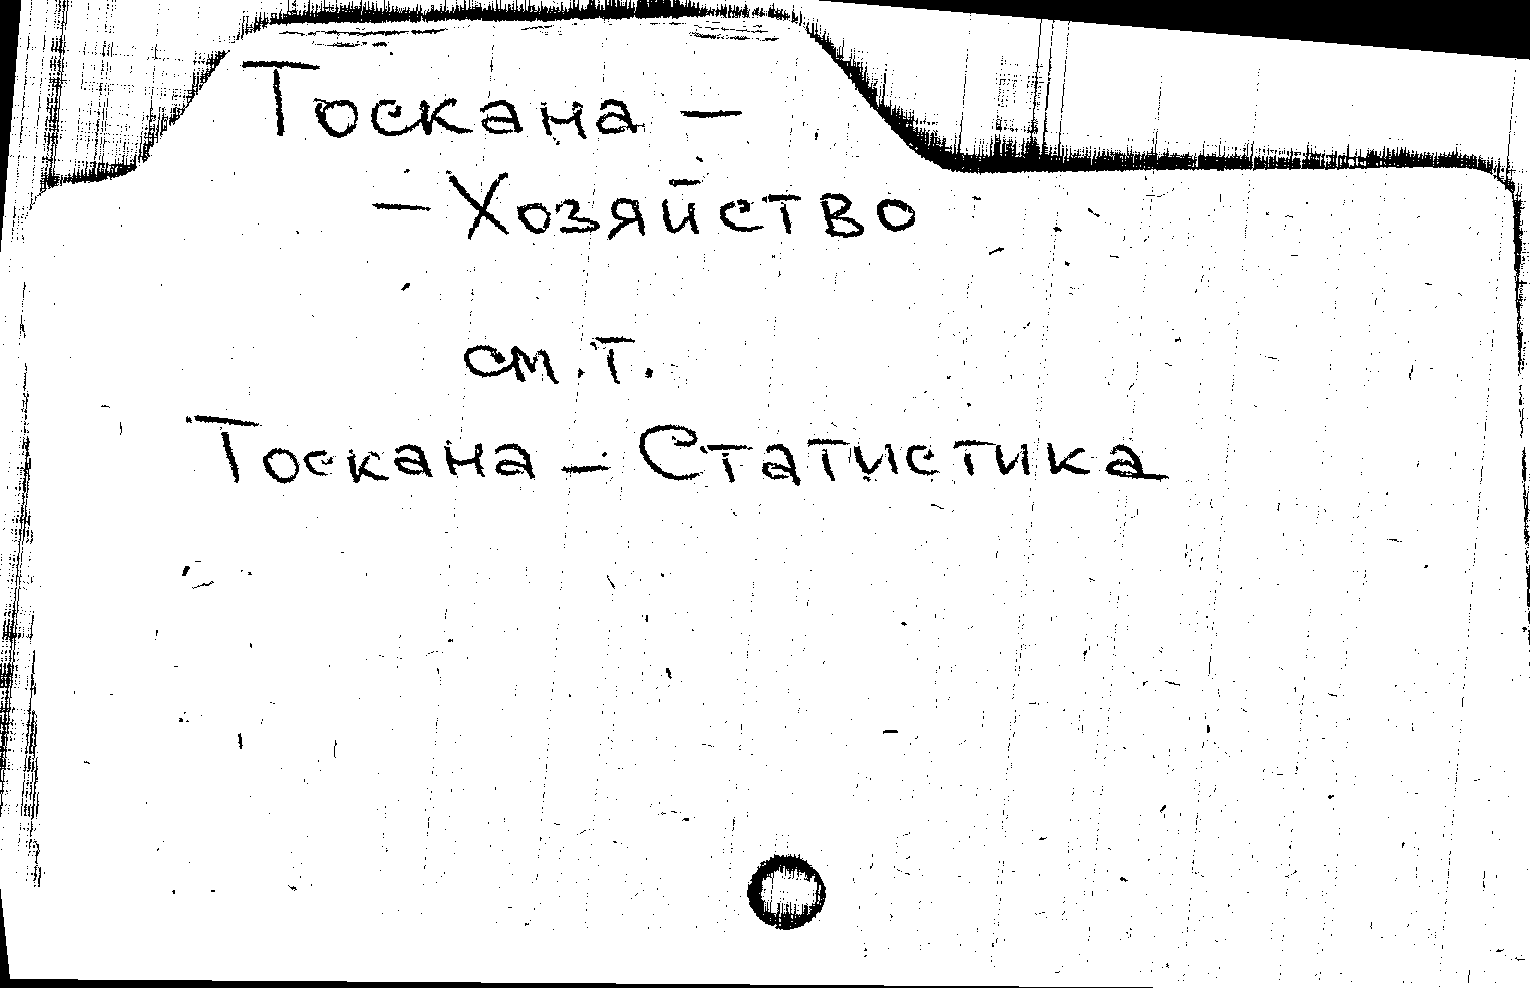 Тоскана –
– Хозяйство
см. т.
Тоскана – Статистика